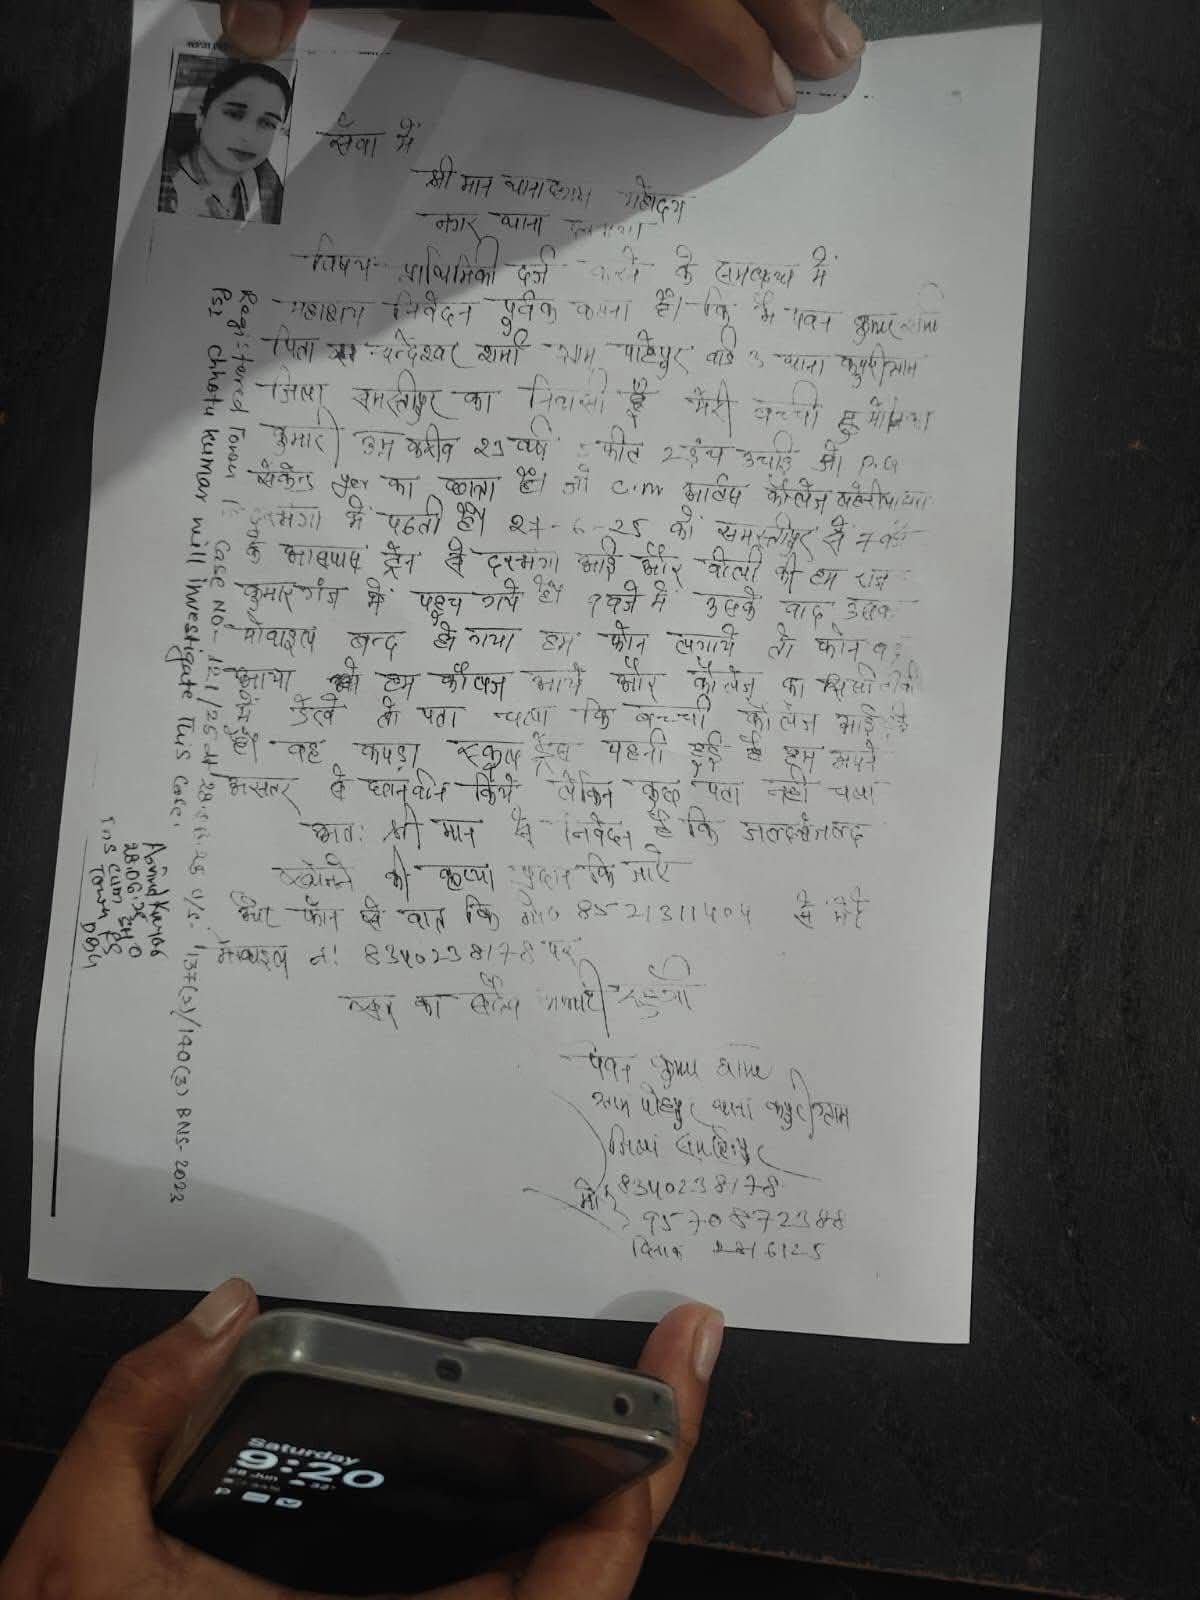 सेवा में
श्री मान थाना महोदय
नगर थाना
विषय प्राथमिकी दर्ज करने के सम्बन्ध में
महाशय निवेदन पुर्वक कहना है। कि मैं पवन कुमार शर्मा
पिता चन्देश्वर शर्मा ग्राम पाहेपुर वार्ड 3 थाना कर्पुरीग्राम
जिला समस्तीपुर का निवासी हुँ मेरी बच्ची
कुमारी उम्र करीब 23 वर्ष 5 फीट 2 इंच उचाई जो P.G
सेकेन्ड का छात्रा है। जो C.M आर्टस कॉलेज
दरभंगा में पढती है। 27-6-25 को समस्तीपुर से 7 बजे
के आसपास ट्रेन से दरभंगा आई और बोली की हम राज
कुमार गंज में पहुच गये है। 9 बजे में उसके बाद उसका
मोबाइल बन्द हो गया हम फोन लगाये तो फोन
आया हम कॉलेज आये और कॉलेज का सिसीटीवी
देखे तो पता चला कि बच्ची कॉलेज आई
वह कपड़ा स्कुल ड्रेस पहनी हुई है हम अपने
स्तर से छानबीन किये लेकिन कुछ पता नही चला
अतः श्री मान से निवेदन है कि जल्द से जल्द
खोजने की कृप्या प्रदान कि जाए
फोन से बात कि मो० 8521311404 से मेरे
मोबाइल नं! 8340238178 पर
पवन कुमार शर्मा
ग्राम पाहेपुर थाना कर्पुरीग्राम
जिला समस्तीपुर
मो० 8340238178
9570872388
दिनांक 28/6/25
Registered Town PS Case No- 121/25 dt 28.6.25 U/S. 137(2)/140(3) BNS-2023
PSI chhotu kumar will investigate This Case.
28.06.25
Ins cum SHO
Town PS
Saturday
9:20
28 Jun
32°